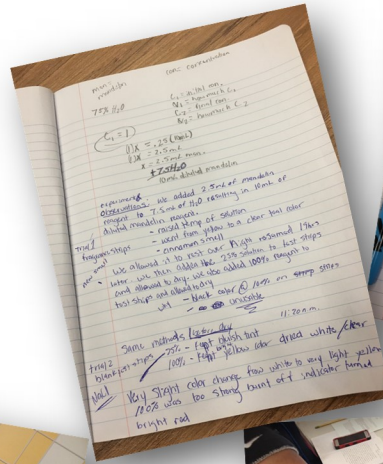 conc. concentration
75% H₂O
C₁ = initial con.
N₁ = how much C₁
C₂ = final con.
N₂ = how much C₂
C₁ = 1
(1)X = .25 (10mL)
(1)X = 2.5mL
X = 2.5mL
+ 7.5 H₂O
10mL diluted mandelin
experiment
observations: We added 2.5mL of mandelin
reagent to 7.5mL of H₂O resulting in 10mL of
diluted mandelin reagent.
- raised temp of solution
- went from yellow to a clear teal color
trial 1
- cinnamon smell
- We allowed it to rest over night
later. We then added the 25% solution to test strips
and allowed to dry. We also added 100% reagent to
test strips and allowed to dry
- black color @ 100% on strips
- unusable
11:20 a.m.
trial 2
Same methods
25% - light bluish tint
100% - light yellow color dried white / clear
Very slight color change from white to very light yellow
100% was too strong burnt off indicator turned
bright red